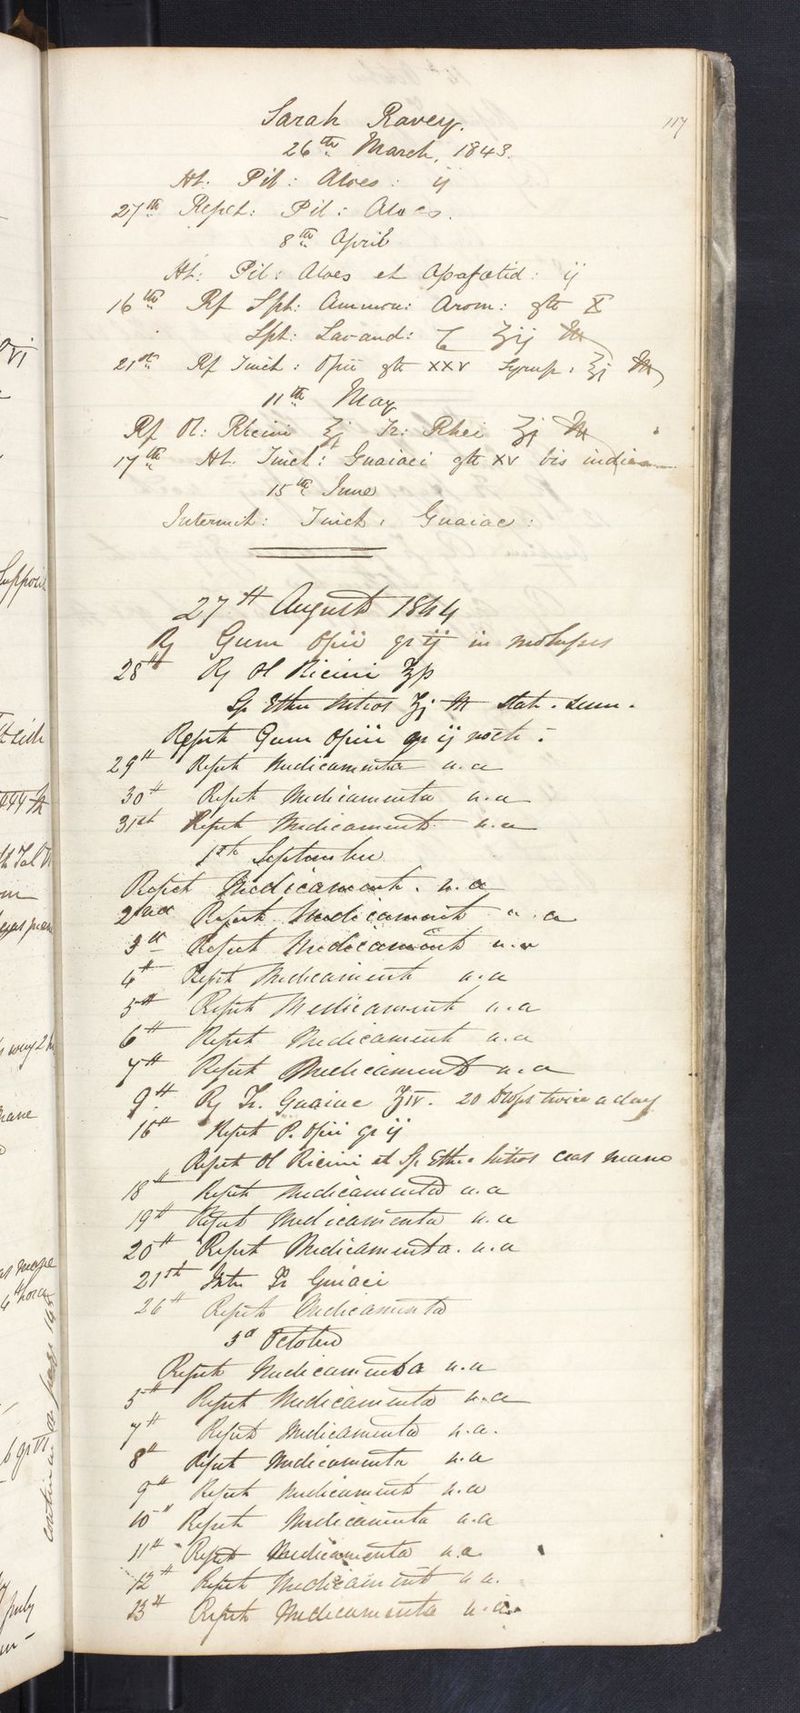 117
Sarah Ravey.
26th March, 1843.
Ht. Pil: Aloes: ij
27th Repet: Pil: Aloes.
8th April
Ht: Pil: Aloes et Assafœtid: ij
16th Rf Spt: Ammon: Arom: gtt X
Spt: Lavand: C ʒij M
21st Rf Tinct: Opii gtt XXV Syrup: ʒj M
11th May
Rf Ol: Ricini ʒj Tr: Rhei ʒj M
17th Ht. Tinct: Guaiaci gtt XV bis indies
15th June
Intermit: Tinct: Guaiac:
27th August 1844
Rj Gum Opii gr ij in molasses
28th Rj Ol Ricini ʒss
Sp Ether Nitros ʒj M stat. sum.
Repet Gum Opii gr ij noct:
29th Repet Medicamenta u.a
30th Repet Medicamenta u.a
31st Repet Medicament u.a
1st September
Repet Medicament. u.a
2nd Repet Medicament u.a
3d Repet Medicament u.a
4th Repet Medicament u.a
5th Repet Medicament u.a
6th Repet Medicament u.a
7th Repet Medicament u.a
9th Rj Tr. Guaiac ʒiv. 20 drops twice a day
16th Repet P. Opii gr ij
Repet Ol Ricini et Sp Ether Nitros cras mane
18th Repet Medicamenta u.a
19th Repet Medicamenta u.a
20th Repet Medicamenta. u.a
21st Intr Tr Guiaci
26th Repet Medicamenta
3d October
Repet Medicamenta u.a
5th Repet Medicamenta u.a
7th Repet Medicamenta u.a.
8th Repet Medicamenta u.a
9th Repet Medicament u.a
10th Repet Medicamenta u.a
11th Repet Medicamenta u.a
12th Repet Medicament u.a.
13th Repet Medicamenta u.a.